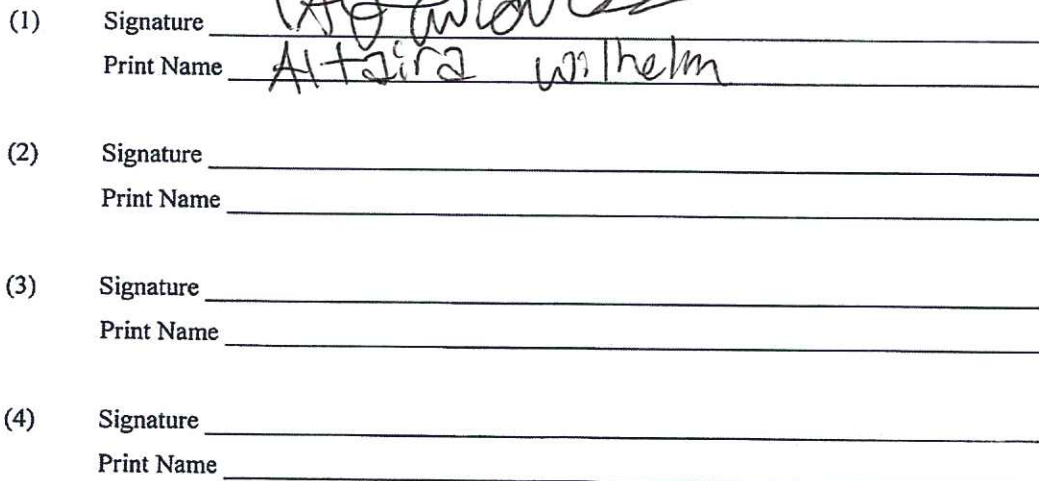 (1) Signature
Print Name Altaira Wilhelm
(2) Signature
Print Name
(3) Signature
Print Name
(4) Signature
Print Name